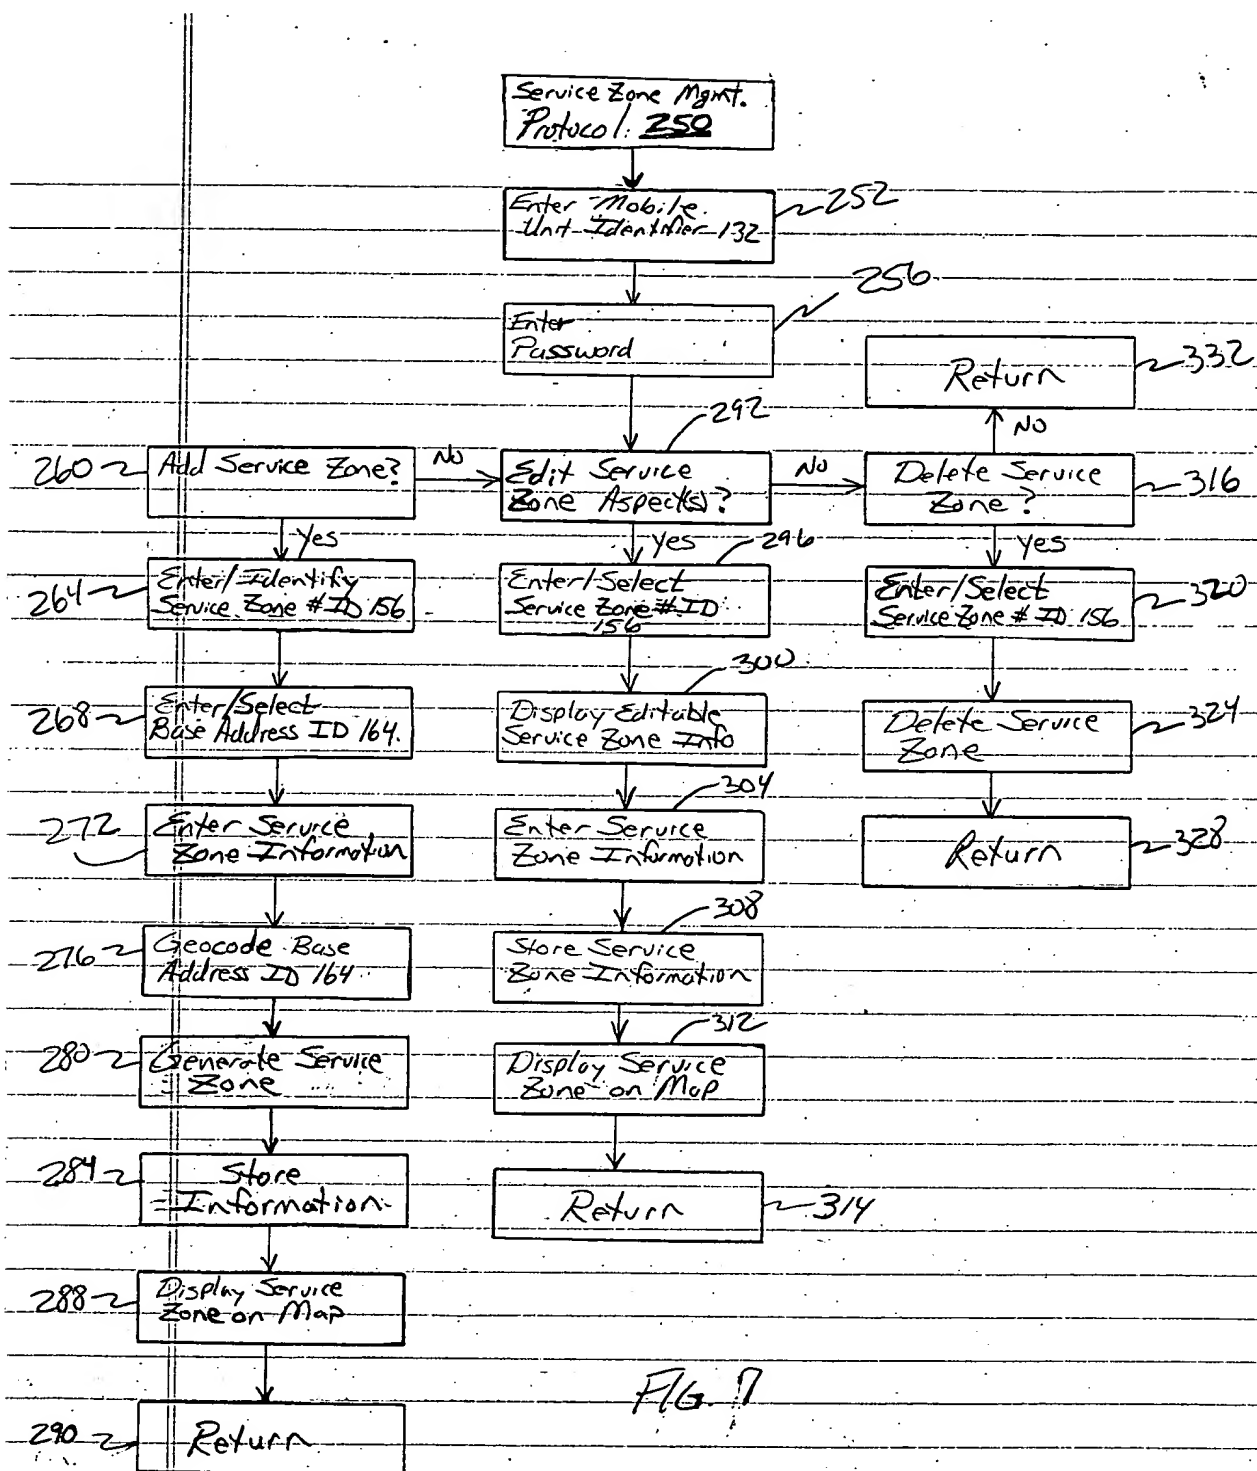 Service Zone Mgmt.
Protocol: 250
Enter Mobile
Unit Identifier 132
252
Enter
Password
256
Return
332
No
260
Add Service Zone?
No
292
Edit Service
Zone Aspect(s)?
No
Delete Service
Zone?
316
Yes
Yes
Yes
264
Enter/Identify
Service Zone # ID 156
296
Enter/Select
Service Zone # ID
156
Enter/Select
Service Zone # ID 156
320
268
Enter/Select
Base Address ID 164.
300
Display Editable
Service Zone Info
Delete Service
Zone
324
272
Enter Service
Zone Information
304
Enter Service
Zone Information
Return
328
276
Geocode Base
Address ID 164
308
Store Service
Zone Information
280
Generate Service
Zone
312
Display Service
Zone on Map
284
Store
Information
Return
314
288
Display Service
Zone on Map
290
Return
FIG. 7